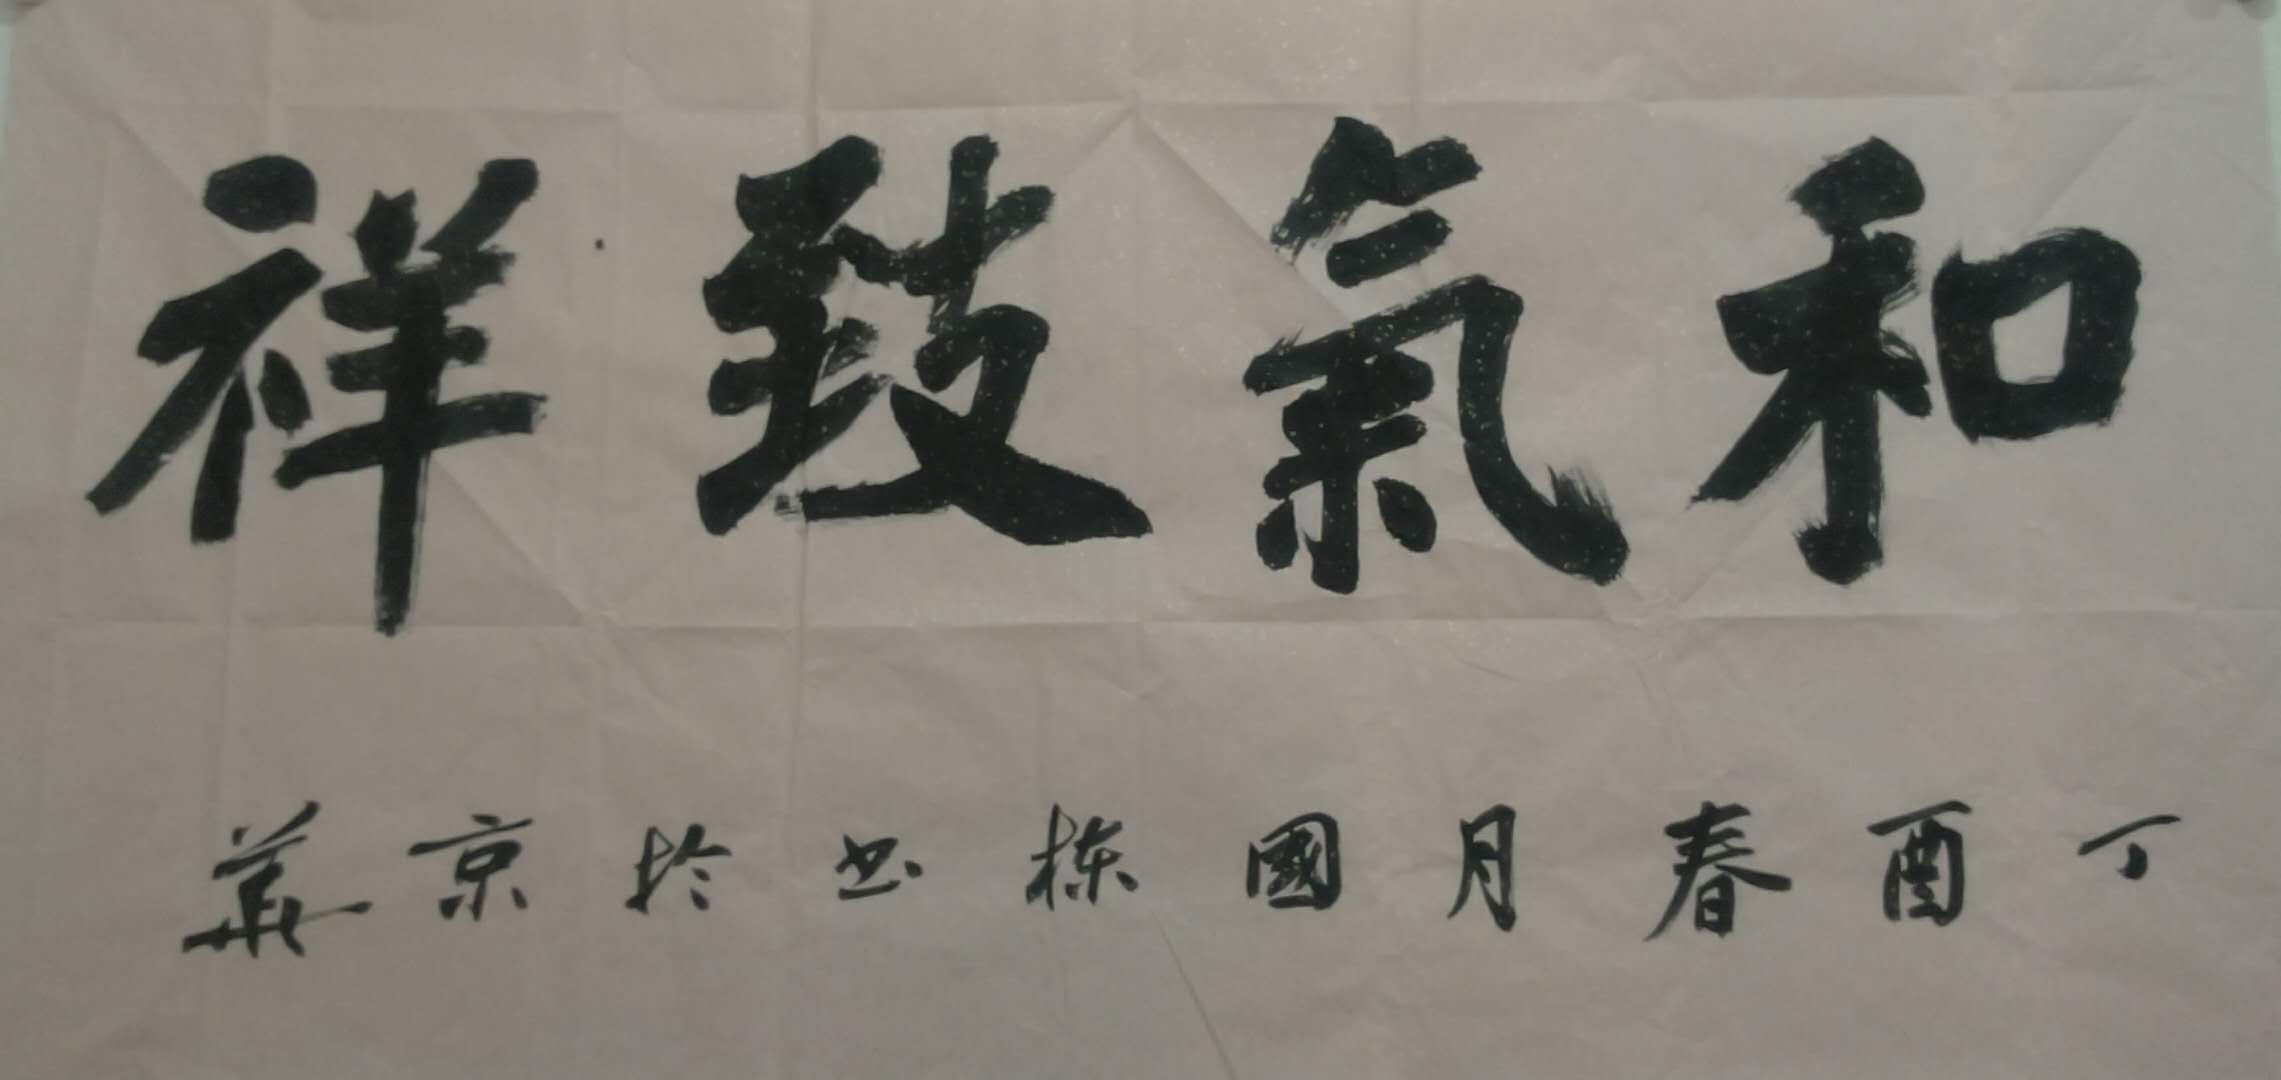 和氣致祥
丁酉春月國栋书於京華